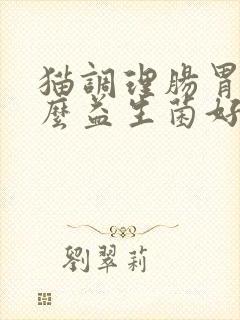 猫調理腸胃
麼益生菌好
劉翠莉